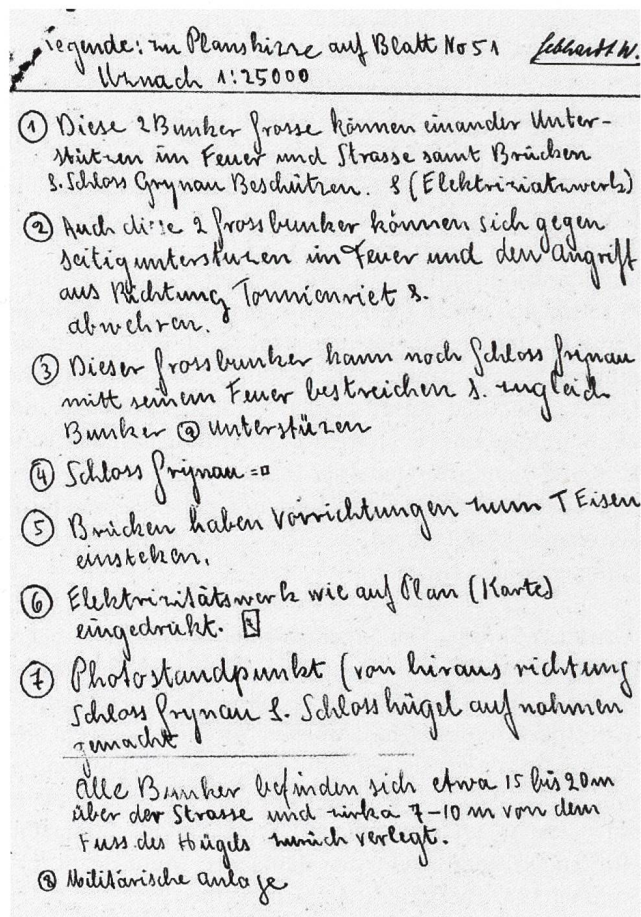 Legende: zu Planskizze auf Blatt No 51 Gebhardt W.
Uznach 1:25000
① Diese 2 Bunker Grosse können einander Unter-
stützen im Feuer und Strasse samt Brücken
&. Schloss Grynau Beschützen. & (Elektriziatzwerk)
② Auch diese 2 Grossbunker können sich gegen
seitig unterstuzen im Feuer und den Angriff
aus Richtung &.
abwehren.
③ Dieser Grossbunker kann noch Schloss Grinau
mitt seinem Feuer bestreichen &. zugleich
Bunker ② Unterstüzen
④ Schloss Grynau = ▫
⑤ Brücken haben Vorrichtungen zum T Eisen
einsteken.
⑥ Elektrizitätswerk wie auf Plan (Karte)
eingedrükt.
⑦ Photostandpunkt (von hiraus richtung
Schloss Grynau &. Schlosshügel aufnahmen
gemacht
Alle Bunker befinden sich etwa 15 bis 20 m
über der Strasse und zirka 7-10 m von dem
Fuss des Hügels zurück verlegt.
⑧ Militärische anlage